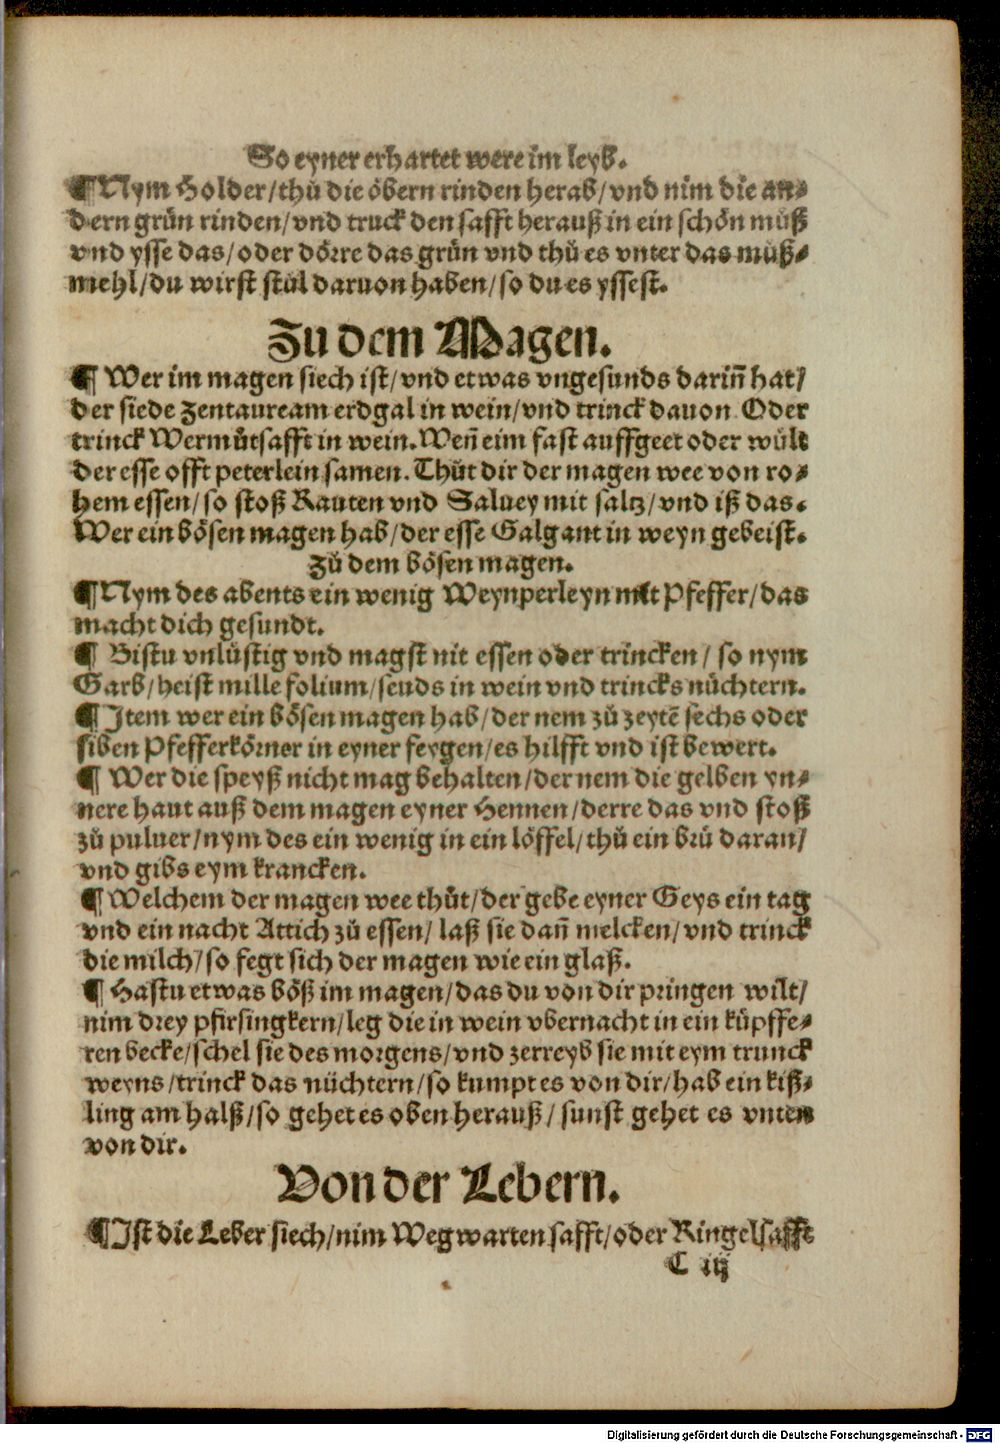 So eyner erhartet were im leyb.
¶ Nym Holder/thů die öbern rinden herab/vnd nim die an⸗
dern grün rinden/vnd truck den safft herauß in ein schön můß
vnd ysse das/oder dörre das grün vnd thů es vnter das můß⸗
mehl/du wirst stůl daruon haben/so du es yssest.
Zu dem Magen.
¶ Wer im magen siech ist/vnd etwas vngesunds dariñ hat/
der siede Zentauream erdgal in wein/vnd trinck dauon Oder
trinck Wermůtsafft in wein. Weñ eim fast auffgeet oder wült
der esse offt peterlein samen. Thůt dir der magen wee von ro⸗
hem essen/so stoß Rauten vnd Saluey mit saltz/vnd iß das.
Wer ein bösen magen hab/der esse Galgant in weyn gebeist.
Zů dem bösen magen.
¶ Nym des abents ein wenig Weynperleyn mit Pfeffer/das
macht dich gesundt.
¶ Bistu vnlüstig vnd magst nit essen oder trincken/ so nym
Garb/heist mille folium/seuds in wein vnd trincks nüchtern.
¶ Item wer ein bösen magen hab/der nem zů zeytẽ sechs oder
siben Pfefferkörner in eyner feygen/es hilfft vnd ist bewert.
¶ Wer die speyß nicht mag behalten/der nem die gelben yn⸗
nere haut auß dem magen eyner Hennen/derre das vnd stoß
zů puluer/nym des ein wenig in ein löffel/thů ein brů daran/
vnd gibs eym krancken.
¶ Welchem der magen wee thůt/der gebe eyner Geys ein tag
vnd ein nacht Attich zů essen/ laß sie dañ melcken/vnd trinck
die milch/so fegt sich der magen wie ein glaß.
¶ Hastu etwas böß im magen/das du von dir pringen wilt/
nim drey pfirsingkern/leg die in wein vbernacht in ein küpffe⸗
ren becke/schel sie des morgens/vnd zerreyb sie mit eym trunck
weyns/trinck das nüchtern/so kumpt es von dir/hab ein kiß⸗
ling am halß/so gehet es oben herauß/ sunst gehet es vnten
von dir.
Von der Lebern.
¶ Ist die Leber siech/nim Wegwarten safft/oder Ringelsafft
C iij
Digitalisierung gefördert durch die Deutsche Forschungsgemeinschaft - DFG